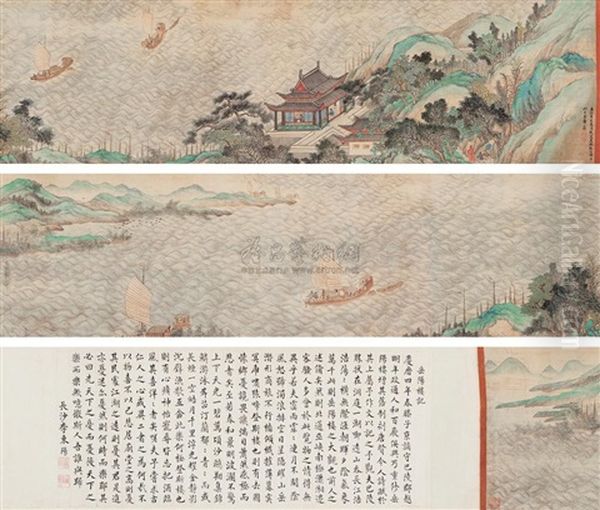 岳陽樓記
慶曆四年春滕子京謫守巴陵郡越
明年政通人和百廢俱興乃重修岳
陽樓增其舊制刻唐賢今人詩賦於
其上屬予作文以記之予觀夫巴陵
勝狀在洞庭一湖銜遠山吞長江浩
浩蕩〻橫無際涯朝暉夕陰氣象
萬千此則岳陽樓之大觀也前人之
述備矣然則北通巫峽南極瀟湘遷
客騷人多會於此覽物之情得無
異乎若夫霪雨霏〻連月不開陰
風怒號濁浪排空日星隱耀山岳
潛形商旅不行檣傾楫摧薄暮冥
冥虎嘯猿啼登斯樓也則有去國
懷鄉憂讒畏譏滿目蕭然感極而
悲者矣至若春和景明波瀾不驚
上下天光一碧萬頃沙鷗翔集錦
鱗游泳岸芷汀蘭郁〻青〻而或
長煙一空皓月千里浮光耀金靜影
沉璧漁歌互答此樂何極登斯樓也
則有心曠神怡寵辱皆忘把酒臨
風其喜洋〻者矣嗟夫予嘗求古
仁人之心或異二者之為何哉不
以物喜不以己悲居廟堂之高則憂
其民處江湖之遠則憂其君是進
亦憂退亦憂然則何時而樂耶其
必曰先天下之憂而憂後天下之
樂而樂歟噫微斯人吾誰與歸
長沙李東陽